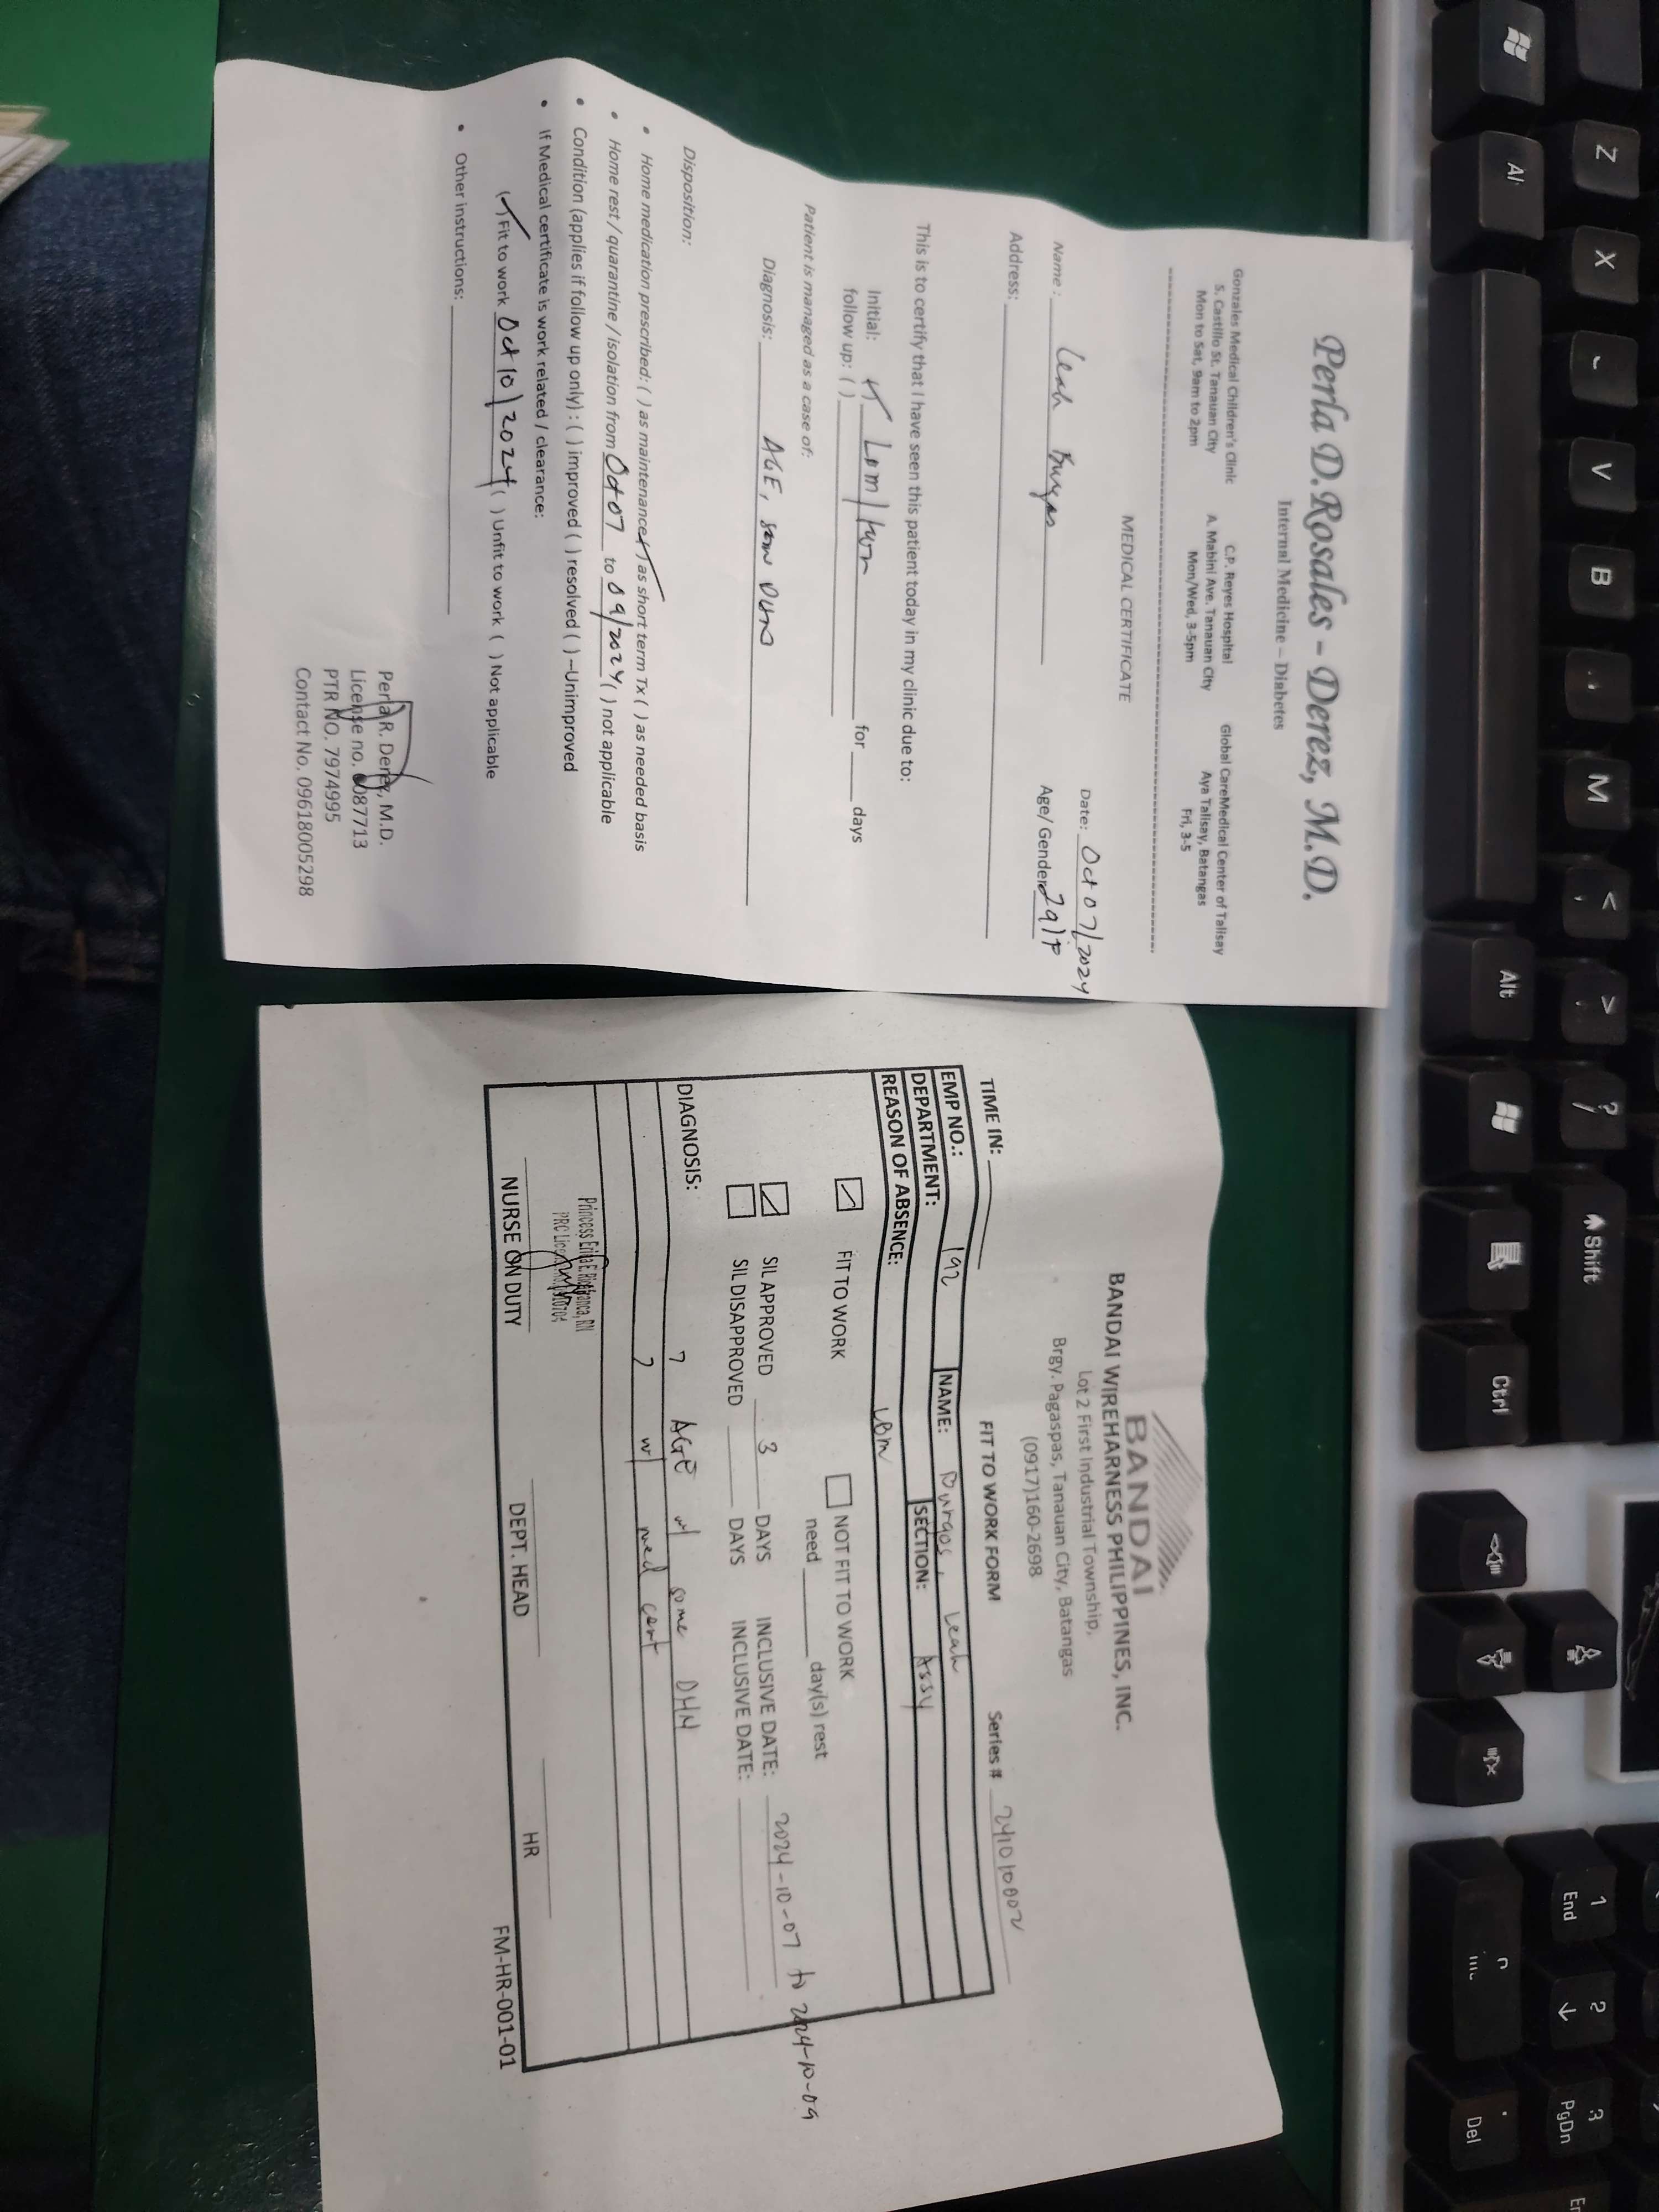 Perla D.Rosales – Derez, M.D.
Internal Medicine – Diabetes
Gonzales Medical Children's Clinic
S. Castillo St. Tanauan City
Mon to Sat, 9am to 2pm
C.P. Reyes Hospital
A. Mabini Ave. Tanauan City
Mon/Wed, 3-5pm
Global CareMedical Center of Talisay
Aya Talisay, Batangas
Fri, 3-5
MEDICAL CERTIFICATE
Date: Oct 07/2024
Name : Leah Burgos
Age/ Gender 29/F
Address:
This is to certify that I have seen this patient today in my clinic due to:
Initial: for days
follow up: ( )
Patient is managed as a case of:
Diagnosis: AGE, some DHN
Disposition:
• Home medication prescribed: ( ) as maintenance (✓) as short term Tx ( ) as needed basis
• Home rest / quarantine / isolation from Oct 07 to 09/2024 ( ) not applicable
• Condition (applies if follow up only) : ( ) improved ( ) resolved ( ) –Unimproved
• If Medical certificate is work related / clearance:
(✓ Fit to work Oct 10/2024 ( ) Unfit to work ( ) Not applicable
• Other instructions:
Perla R. Derez, M.D.
License no. 0087713
PTR NO. 7974995
Contact No. 09618005298
BANDAI
BANDAI WIREHARNESS PHILIPPINES, INC.
Lot 2 First Industrial Township,
Brgy. Pagaspas, Tanauan City, Batangas
(0917)160-2698
FIT TO WORK FORM
Series # 241010002
TIME IN:
EMP NO.: 192 NAME: Burgos, Leah
DEPARTMENT: SECTION: Assy
REASON OF ABSENCE: LBM
FIT TO WORK NOT FIT TO WORK
need day(s) rest
SIL APPROVED 3 DAYS INCLUSIVE DATE: 2024-10-07 to 2024-10-09
SIL DISAPPROVED DAYS INCLUSIVE DATE:
DIAGNOSIS: 7 AGE w/ some DHN
7 w/ med cert
NURSE ON DUTY DEPT. HEAD HR
FM-HR-001-01
Z
X
V
B
M
<
,
>
.
?
/
Alt
Alt
Shift
Ctrl
1
End
2
3
PgDn
Del